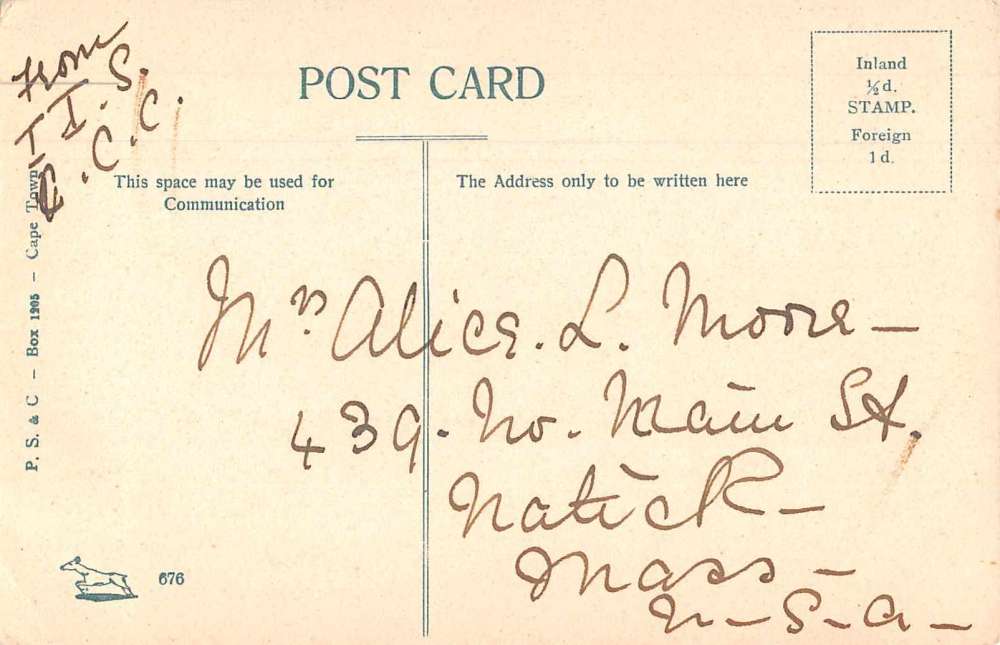 from
I I. S.
C. C. C.
POST CARD
Inland
½d.
STAMP.
Foreign
1d.
This space may be used for
Communication
The Address only to be written here
P. S. & C – Box 1905 – Cape Town
Mrs Alice. L. Moore –
439. No. Main St.
Natick –
Mass –
U – S – A –
676